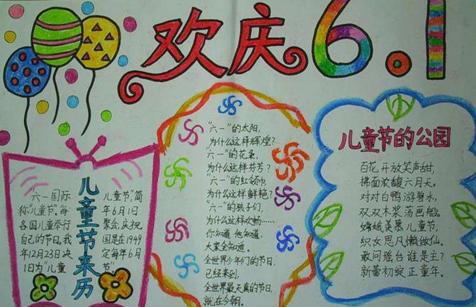 欢庆6.1
儿童节来历
六一国际
称儿童节,每
各国儿童举行
自己的节日,我
年12月23日决
1日为"儿童
儿童节,简
年6月1日
聚会,庆祝
国是在1949
定每年6月
节"
"六一"的太阳,
为什么这样辉煌?
"六一"的花朵,
为什么这样芬芳?
"六一"的红领巾
为什么这样鲜艳?
"六一"的孩子们,
为什么这样欢畅……
你知道,他知道,
大家全知道,
全世界少年们的节日,
已经来到,
全世界最大的节日,
就在今朝。
儿童节的公园
百花开放笑声甜,
拂面浓馥六月天。
对对白鸭游绿水,
双双木桨荡画船。
嫦娥羡慕儿童节,
织女思凡懒做仙。
敢问瑶台谁是主?
新蕾初绽正童年。